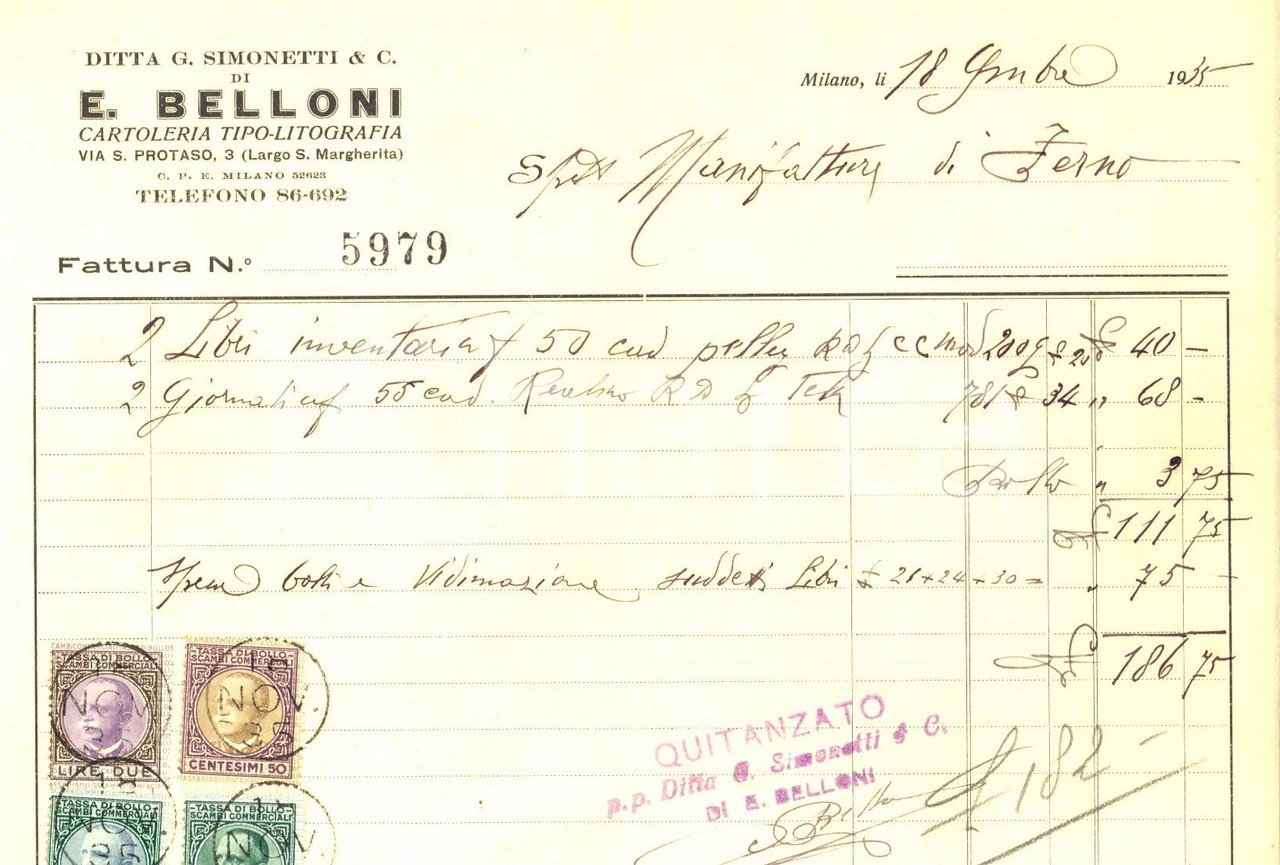 DITTA G. SIMONETTI & C.
DI
E. BELLONI
CARTOLERIA TIPO-LITOGRAFIA
VIA S. PROTASO, 3 (Largo S. Margherita)
C. P. E. MILANO 52623
TELEFONO 86-692
Milano, li 18 9mbre 1935
Manifattura di Ferno
Fattura N.º 5979
2 Libri inventari 50 cad pelle 20 £ 40 —
2 Giornali 55 cad. Tela 781 34 „ 68 -
Bollo „ 3 75
111 75
Spese bolli e Vidimazione suddetti Libri 21+24+30= „ 75 -
186 75
TASSA DI BOLLO
SCAMBI COMMERCIALI
LIRE DUE
15
NOV.
35
TASSA DI BOLLO
SCAMBI COMMERCIALI
CENTESIMI 50
15
NOV.
35
TASSA DI BOLLO
SCAMBI COMMERCIALI
NOV.
TASSA DI BOLLO
SCAMBI COMMERCIALI
NOV.
QUITANZATO
p.p. Ditta G. Simonetti & C.
DI E. BELLONI
£ 182 -